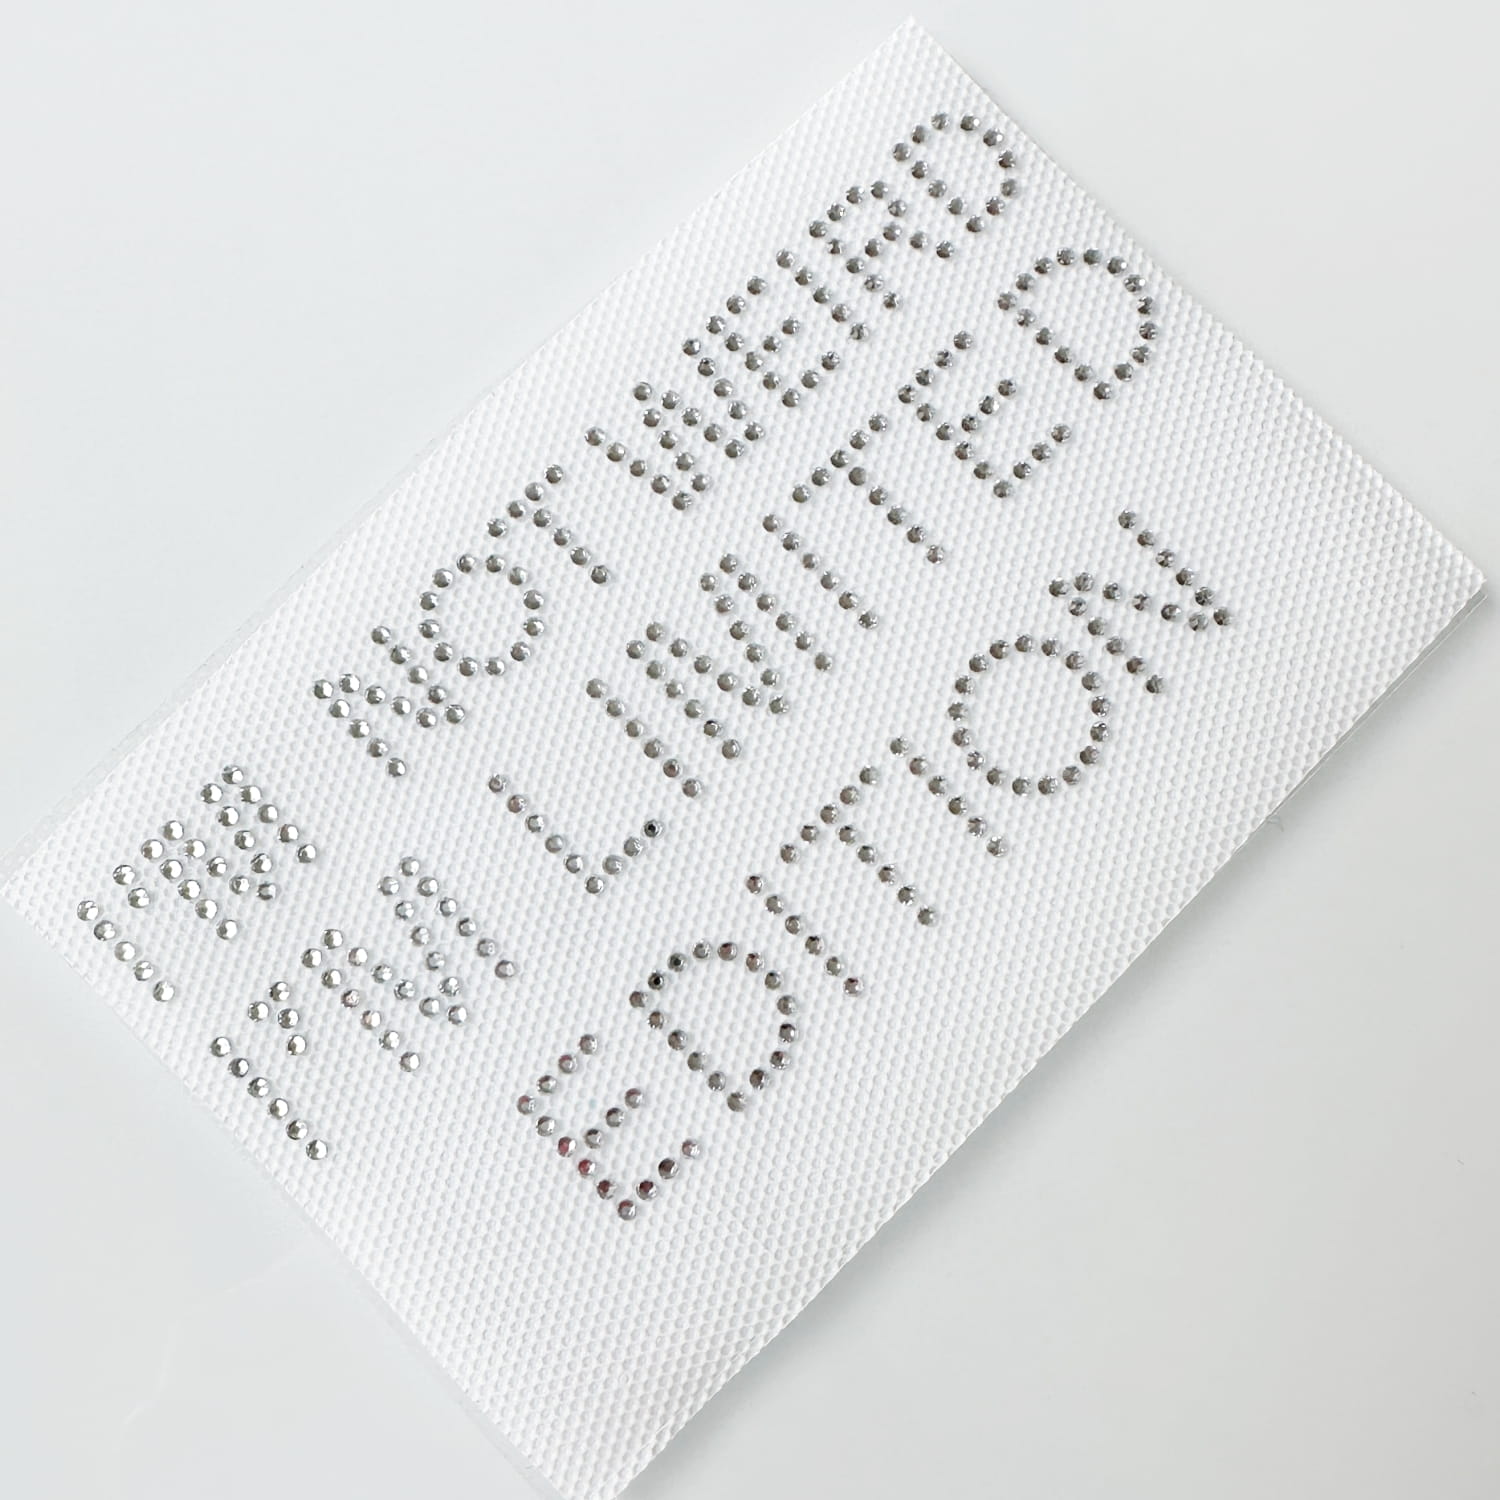 I'M NOT WEIRD
I'M LIMITED
EDITION